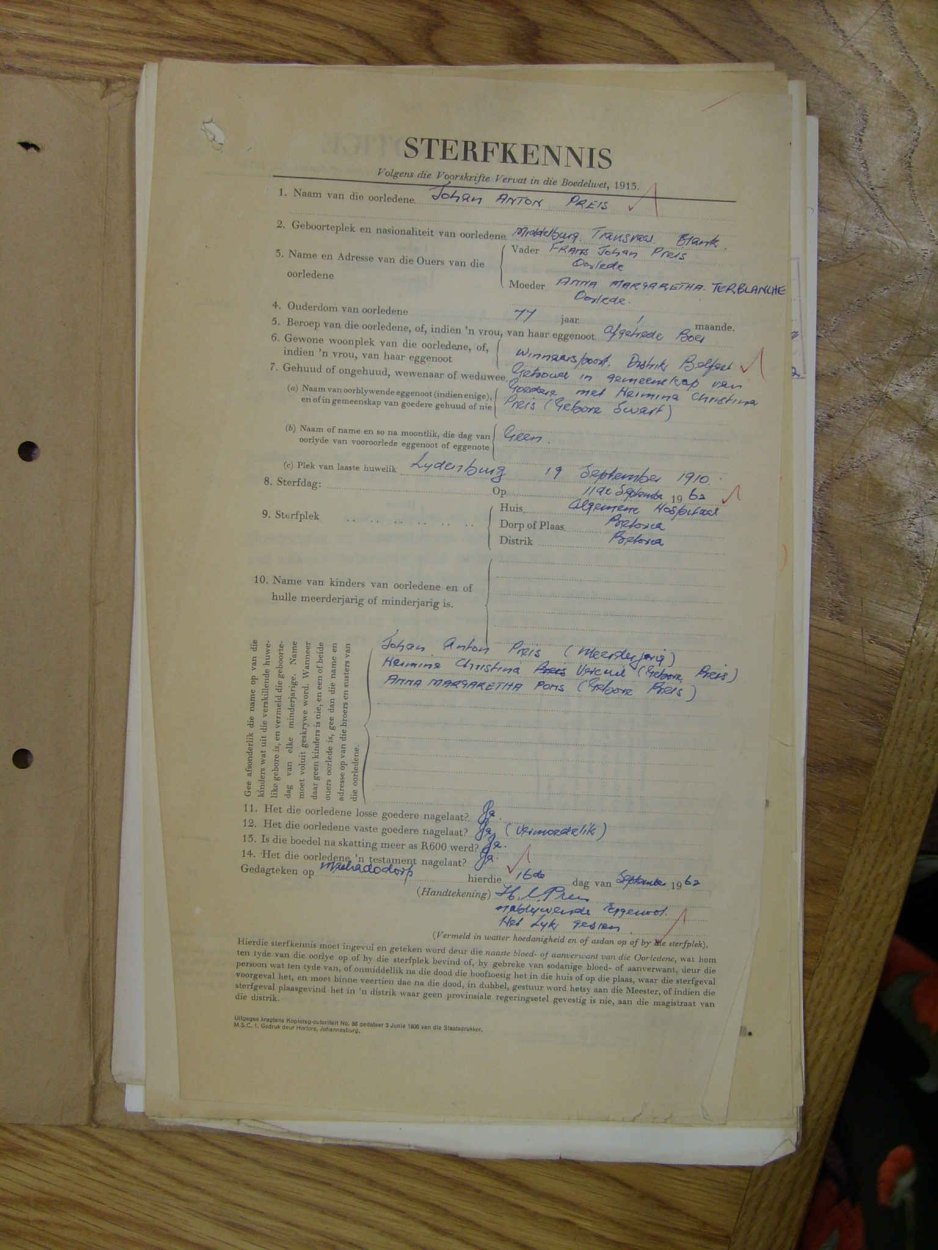 STERFKENNIS
Volgens die Voorskrifte Vervat in die Boedelwet, 1915.
1. Naam van die oorledene Johan ANTON PREIS
2. Geboorteplek en nasionaliteit van oorledene Middelburg. Transvaal Blank
3. Name en Adresse van die Ouers van die oorledene
Vader FRANS Johan Preis
Oorlede
Moeder ANNA MARGARETHA TERBLANCHE
Oorlede.
4. Ouderdom van oorledene 77 jaar maande.
5. Beroep van die oorledene, of, indien 'n vrou, van haar eggenoot Afgetrede Boer
6. Gewone woonplek van die oorledene, of, indien 'n vrou, van haar eggenoot
Winnaarspoort, Distrik Belfast
7. Gehuud of ongehuud, wewenaar of weduwee. Getroud in gemeenskap van
(a) Naam van oorblywende eggenoot (indien enige), en of in gemeenskap van goedere gehuud of nie
Goedere met Hermina Christina
Preis (Gebore Swart)
(b) Naam of name en so na moontlik, die dag van oorlyde van vooroorlede eggenoot of eggenote
Geen.
(c) Plek van laaste huwelik Lydenburg 19 September 1910.
8. Sterfdag: Op 11de September 1962
9. Sterfplek
Huis Algemene Hospitaal
Dorp of Plaas Pretoria
Distrik Pretoria
10. Name van kinders van oorledene en of hulle meerderjarig of minderjarig is.
Gee afsonderlik die name op van die kinders wat uit die verskillende huwelike gebore is, en vermeld die geboortedag van elke minderjarige. Name moet voluit geskrywe word. Wanneer daar geen kinders is nie, en een of beide ouers oorlede is, gee dan die name en adresse op van die broers en susters van die oorledene.
Johan Anton Preis (Meerderjarig)
Hermina Christina (Gebore Preis)
ANNA MARGARETHA (Gebore Preis)
11. Het die oorledene losse goedere nagelaat? Ja.
12. Het die oorledene vaste goedere nagelaat? Ja, (Vermoedelik)
13. Is die boedel na skatting meer as R600 werd? Ja.
14. Het die oorledene 'n testament nagelaat? Ja.
Gedagteken op Machadodorp hierdie 16de dag van September 1962
(Handtekening) H. C. Preis
Oorblywende Eggenoot.
Het Lyk gesien.
(Vermeld in watter hoedanigheid en of asdan op of by die sterfplek).
Hierdie sterfkennis moet ingevul en geteken word deur die naaste bloed- of aanverwant van die Oorledene, wat hom
ten tyde van die oorlye op of by die sterfplek bevind of, by gebreke van sodanige bloed- of aanverwant, deur die
persoon wat ten tyde van, of onmiddellik na die dood die hooftoesig het in die huis of op die plaas, waar die sterfgeval
voorgeval het, en moet binne veertien dae na die dood, in dubbel, gestuur word hetsy aan die Meester, of indien die
sterfgeval plaasgevind het in 'n distrik waar geen provinsiale regeringsetel gevestig is nie, aan die magistraat van
die distrik.
Uitgegee kragtens Kopiereg-outoriteit No. gedateer 3 Junie van die Staatsdrukker.
M.S.C. 1. Gedruk deur Hortors, Johannesburg.